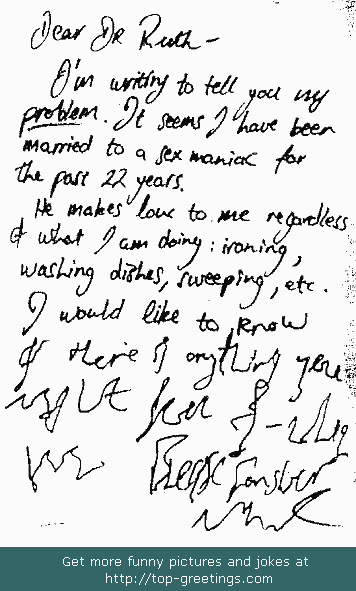 Dear Dr Ruth -
I'm writing to tell you my
problem. It seems I have been
married to a sex maniac for
the past 22 years.
He makes love to me regardless
of what I am doing: ironing,
washing dishes, sweeping, etc.
I would like to know
if there is anything you
Get more funny pictures and jokes at
http://top-greetings.com